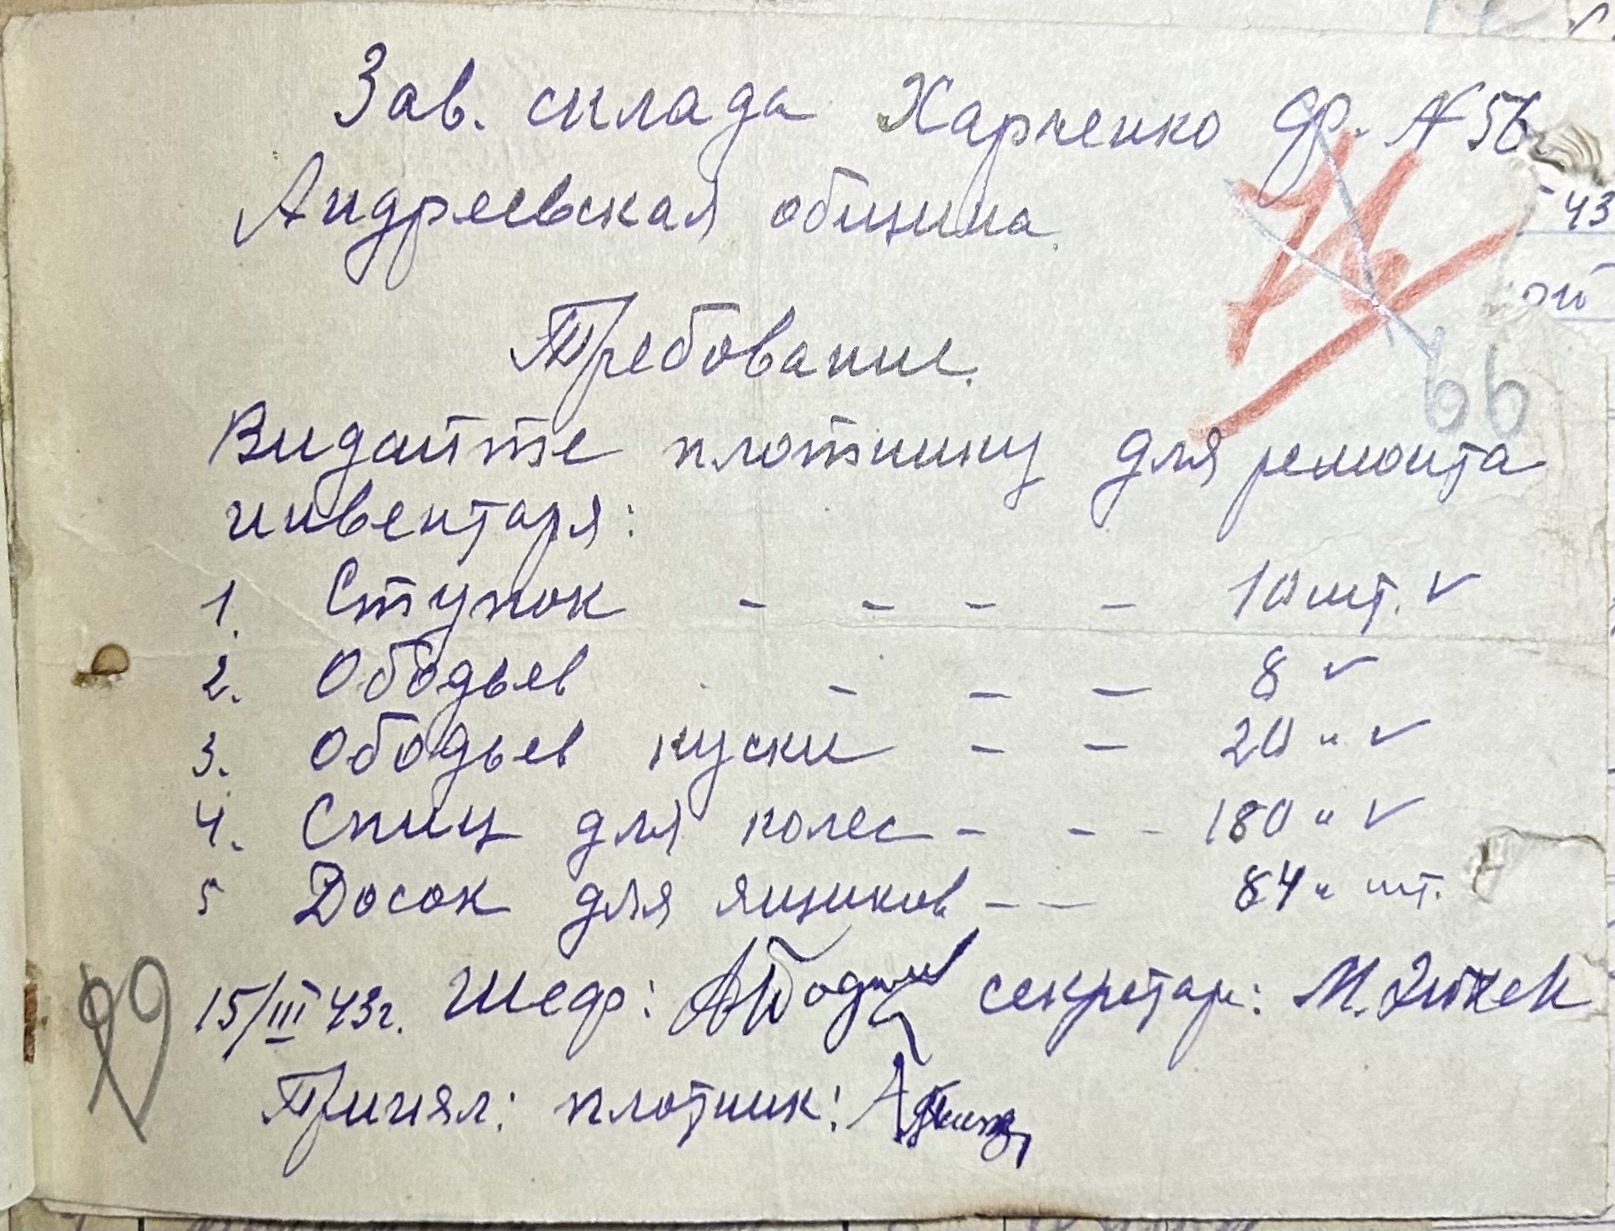 Зав. склада Харченко др. № 56
Андреевская община.
43
ой
Требование.
66
Видайте плотнику для ремонта
инвентаря:
1. Ступок - - - - 10 шт. ✓
2. Ободьев - - - 8 ✓
3. Ободьев куски - - 20 " ✓
4. Спиц для колес - - - 180 " ✓
5 Досок для ящиков - - 84 " шт.
15/III 43г. Шеф: секретар: М.
Принял: плотник: